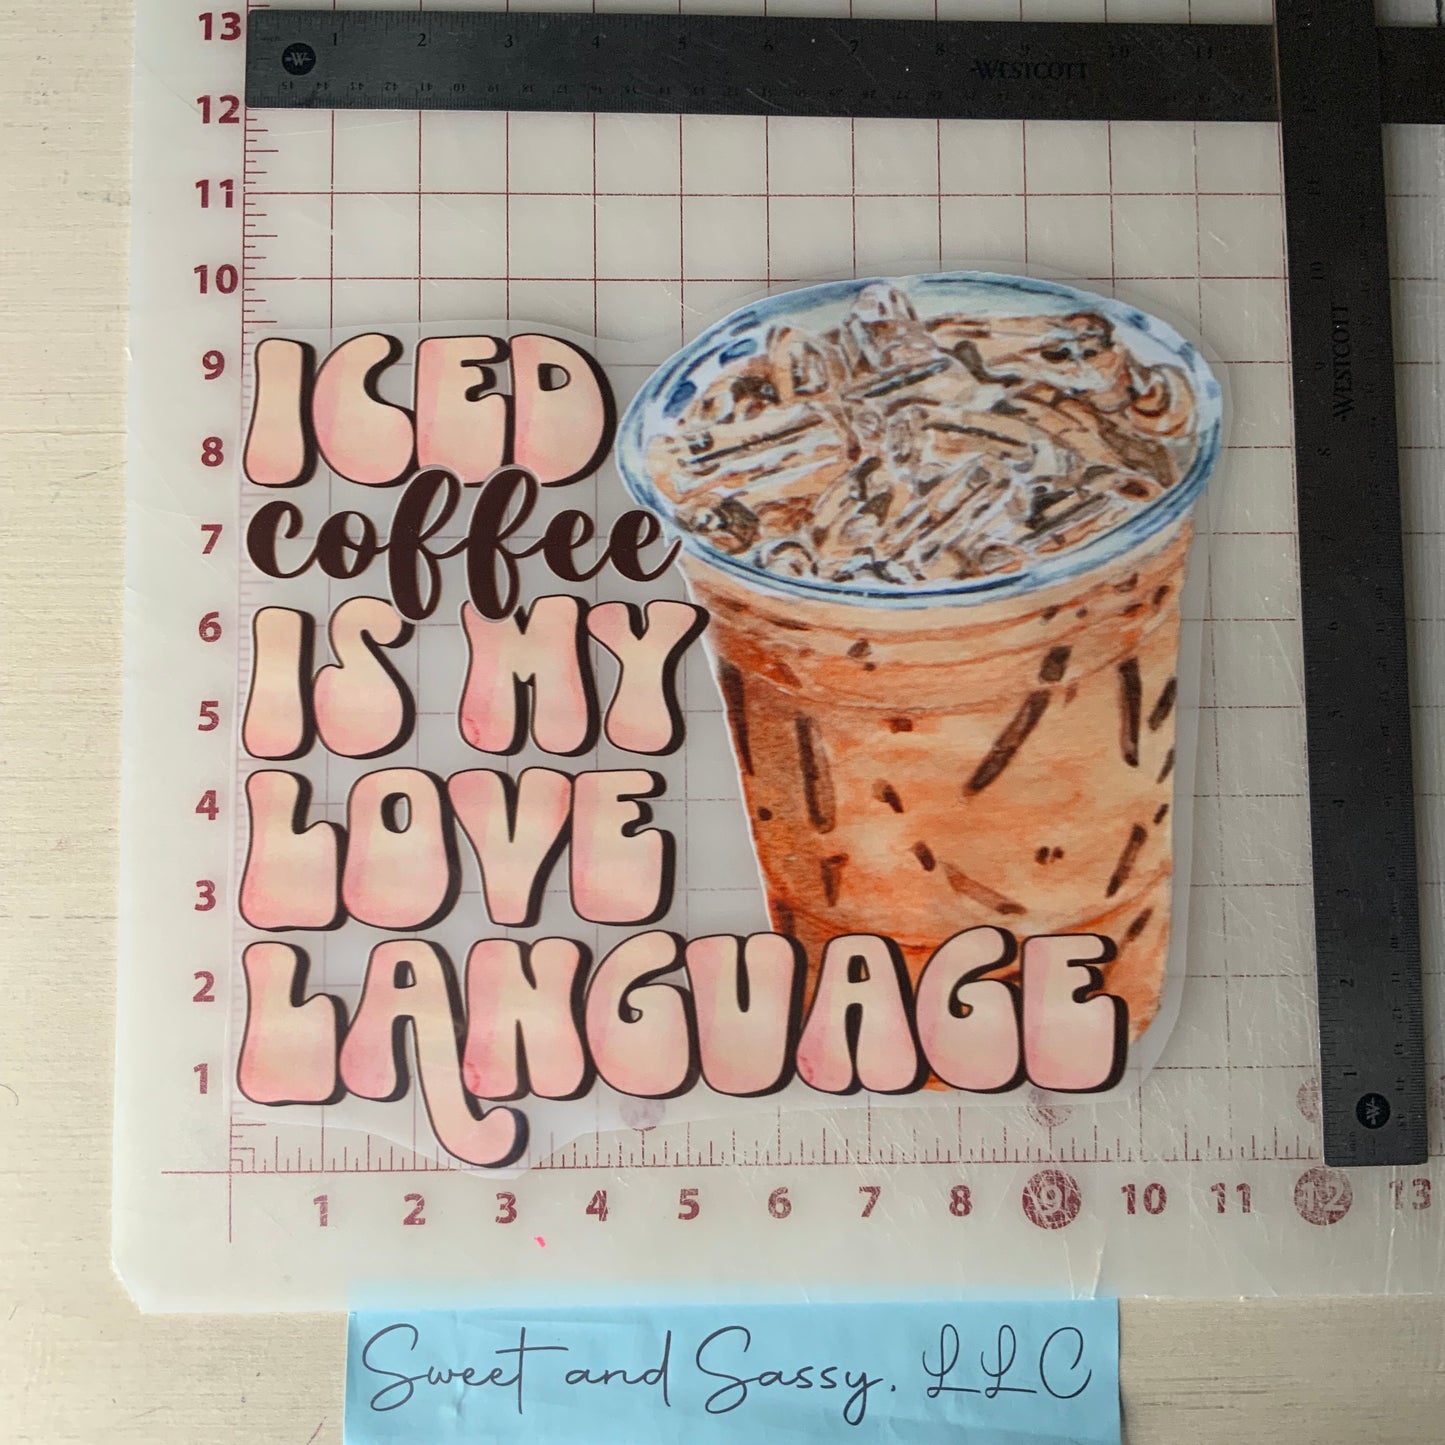 13
1 2 3 4 5 6 7 8 9 10 11
WESTCOTT
12
11
10
9
8
7
6
5
4
3
2
1
ICED
coffee
IS MY
LOVE
LANGUAGE
WESTCOTT
1 2 3 4 5 6 7 8 9 10 11 12 13
Sweet and Sassy, LLC